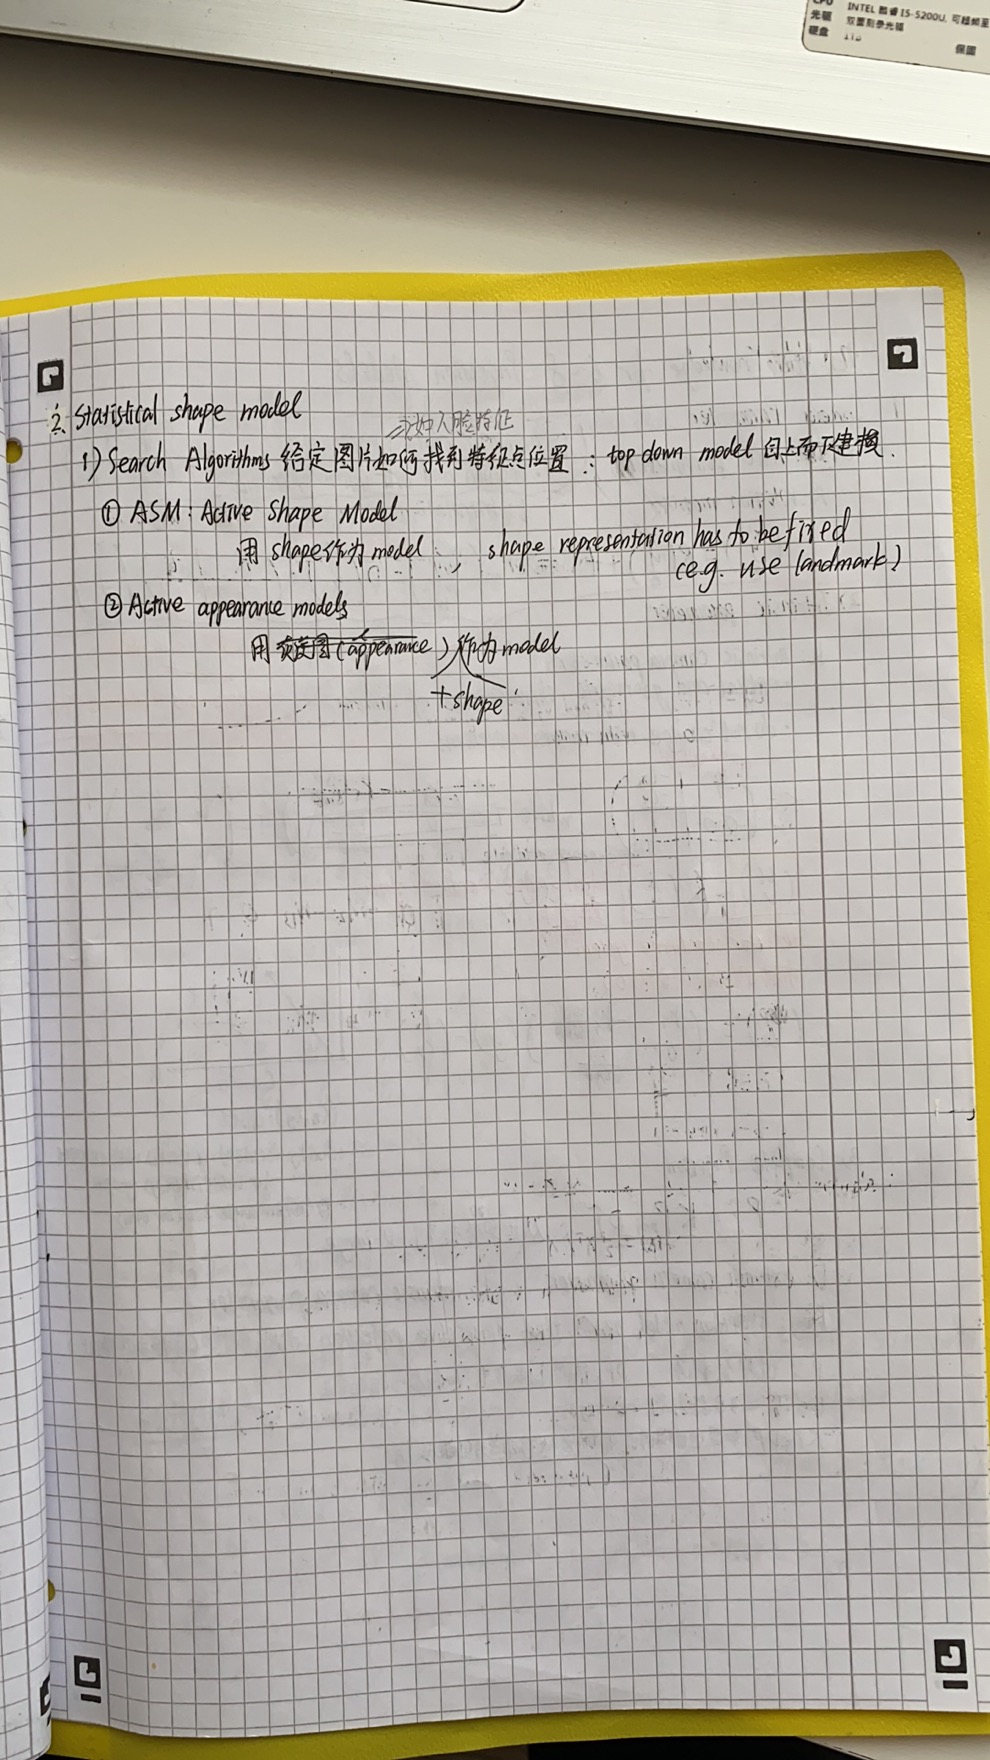 CPU INTEL 酷睿 I5-5200U, 可超頻至
光驅 双面刻录光驅
硬盘 1TB
保固
2. Statistical shape model
⇒如人脸特征
1) Search Algorithms 给定图片如何找到特征点位置 : top down model 自上而下建模.
① ASM: Active Shape Model
用 shape作为 model , shape representation has to be fixed
(e.g. use landmark)
② Active appearance models
用 (appearance) 作为 model
+ shape